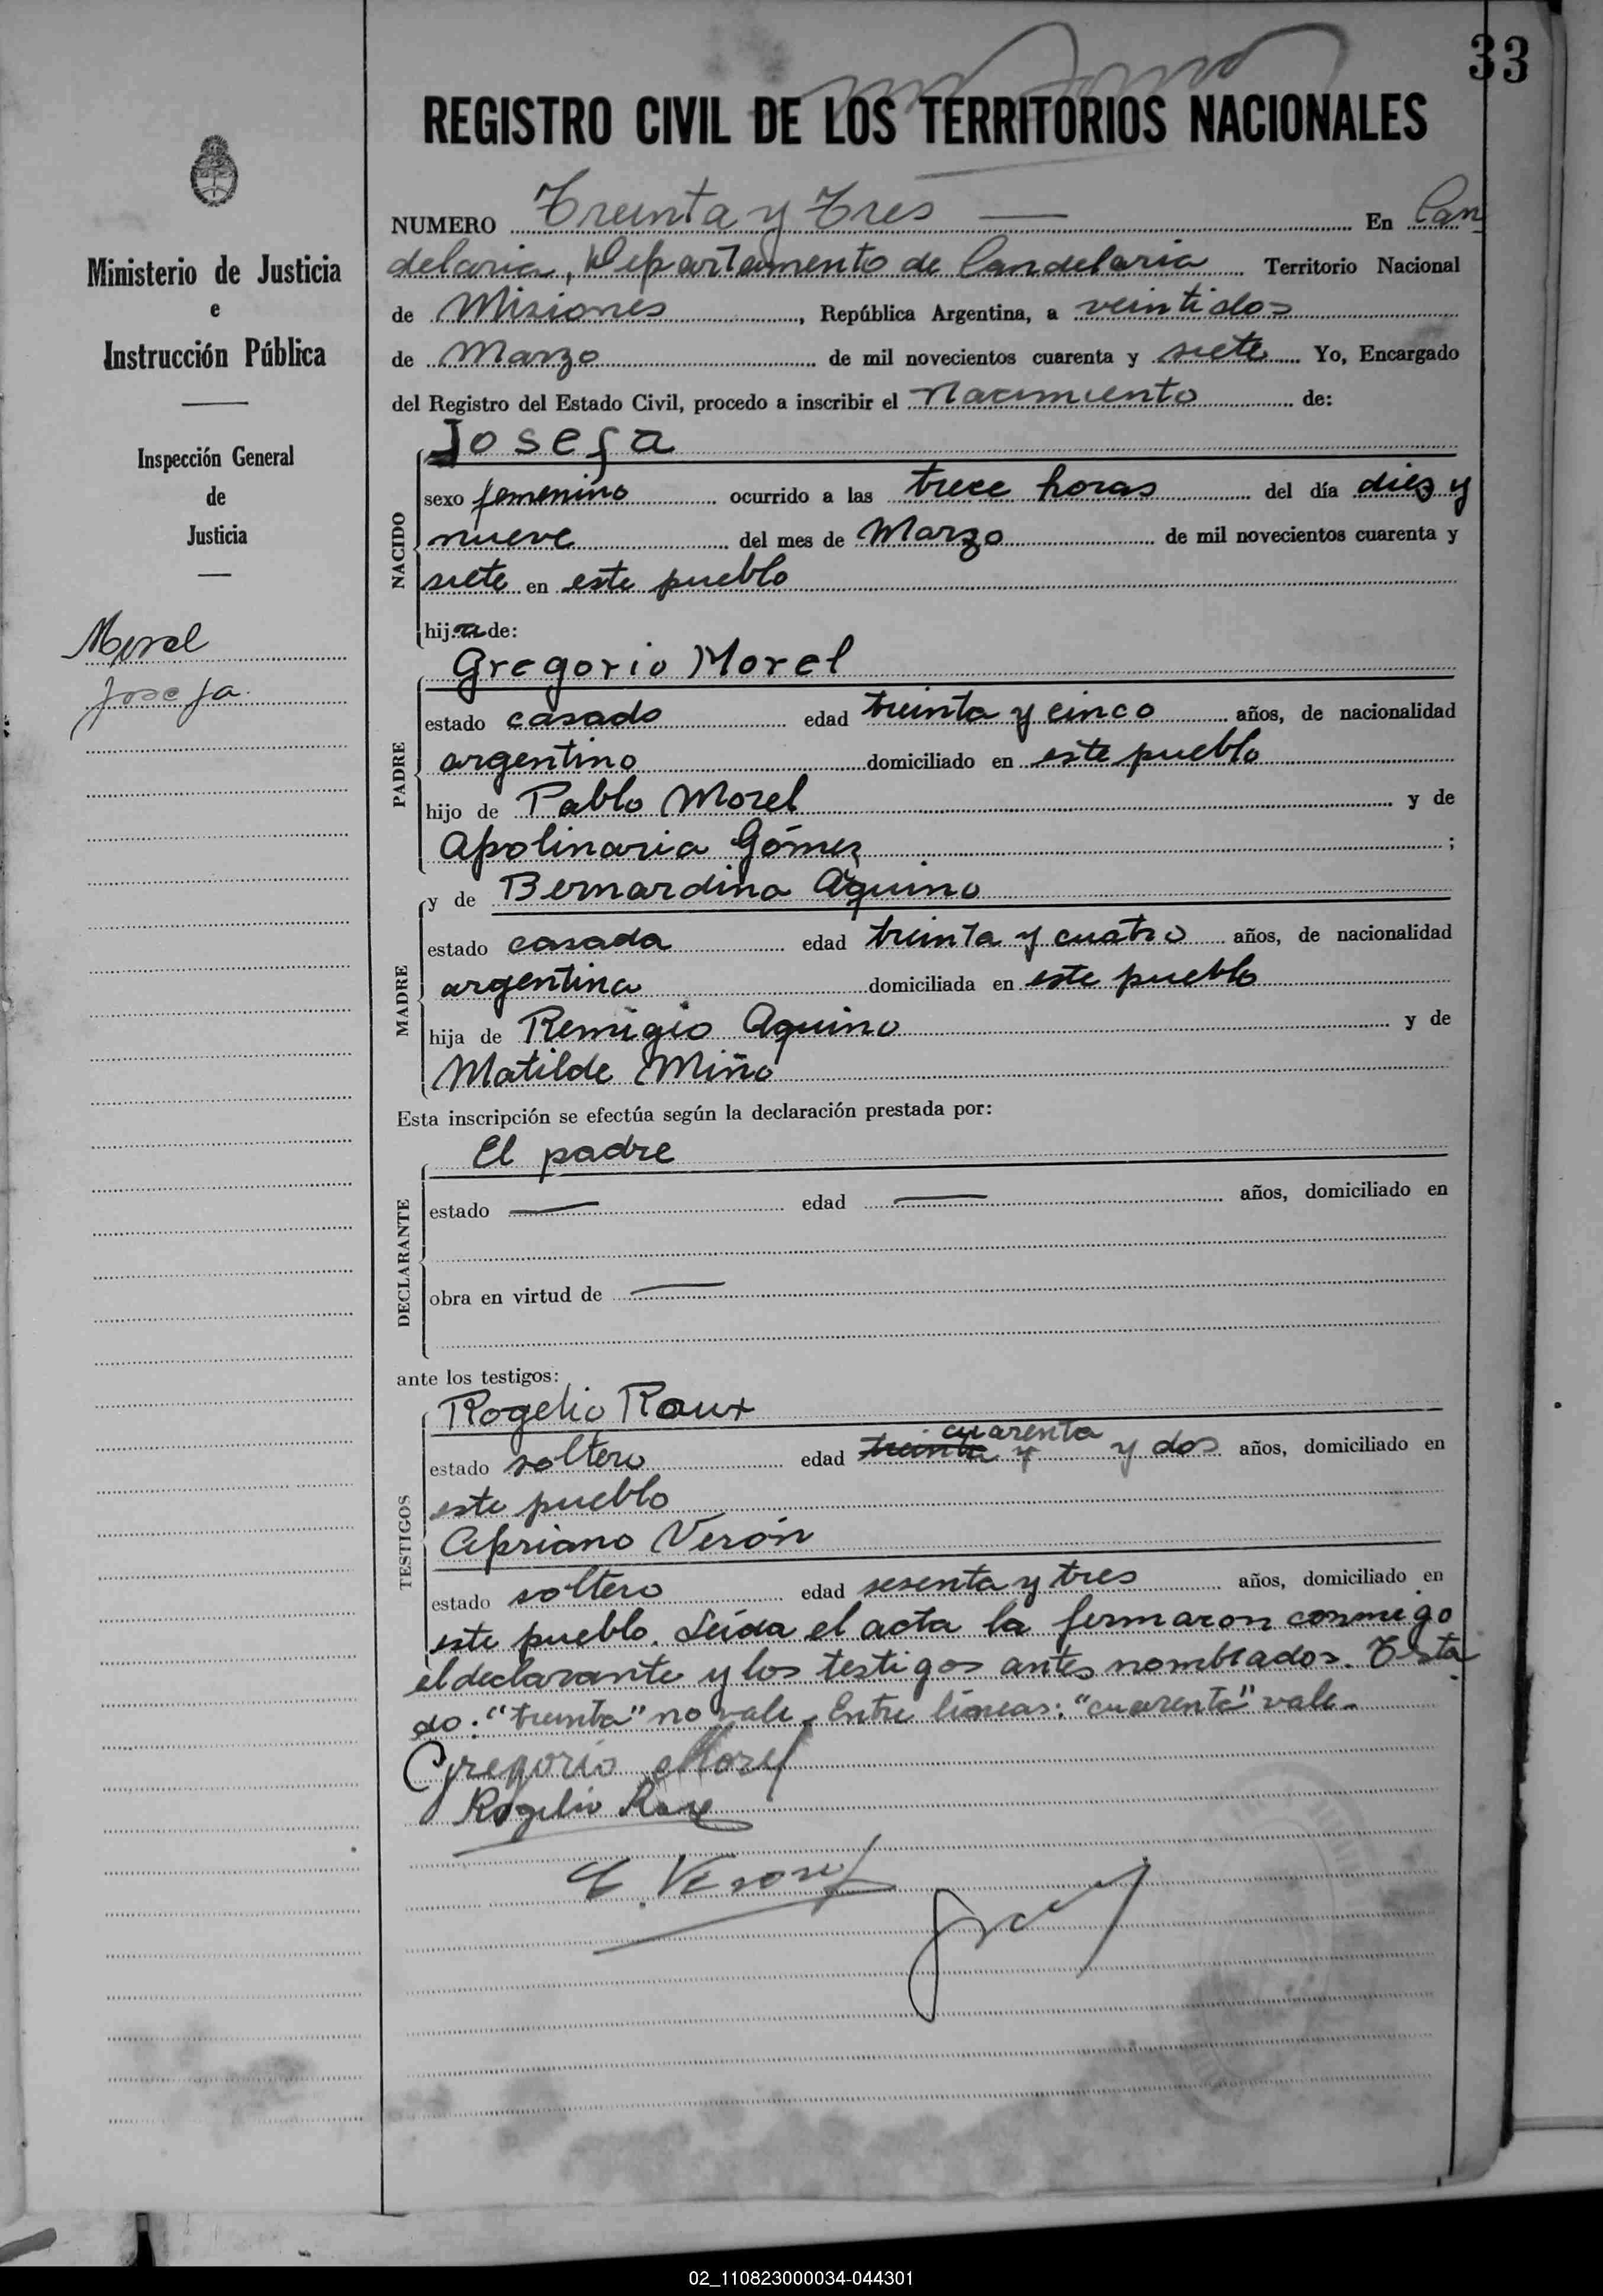 33
REGISTRO CIVIL DE LOS TERRITORIOS NACIONALES
NUMERO Treinta y Tres — En Can
delaria, Departamento de Candelaria Territorio Nacional
de Misiones, República Argentina, a veintidos
de Marzo de mil novecientos cuarenta y siete Yo, Encargado
del Registro del Estado Civil, procedo a inscribir el Nacimiento de:
Ministerio de Justicia
e
Instrucción Pública
Inspección General
de
Justicia
Morel
Josefa
NACIDO
Josefa
sexo femenino ocurrido a las trece horas del día diez y
nueve del mes de Marzo de mil novecientos cuarenta y
siete en este pueblo
hija de:
PADRE
Gregorio Morel
estado casado edad treinta y cinco años, de nacionalidad
argentino domiciliado en este pueblo
hijo de Pablo Morel y de
Apolinaria Gómez ;
MADRE
y de Bernardina Aquino
estado casada edad treinta y cuatro años, de nacionalidad
argentina domiciliada en este pueblo
hija de Remigio Aquino y de
Matilde Miño
Esta inscripción se efectúa según la declaración prestada por:
DECLARANTE
El padre
estado — edad — años, domiciliado en
obra en virtud de —
ante los testigos:
TESTIGOS
Rogelio Roux
cuarenta
estado soltero edad treinta y y dos años, domiciliado en
este pueblo
Cipriano Verón
estado soltero edad sesenta y tres años, domiciliado en
este pueblo. Leída el acta la firmaron conmigo
el declarante y los testigos antes nombrados. Testa
do: "treinta" no vale. Entre líneas: "cuarenta" vale.
Gregorio Morel
Rogelio Roux
C. Veron
02_110823000034-044301